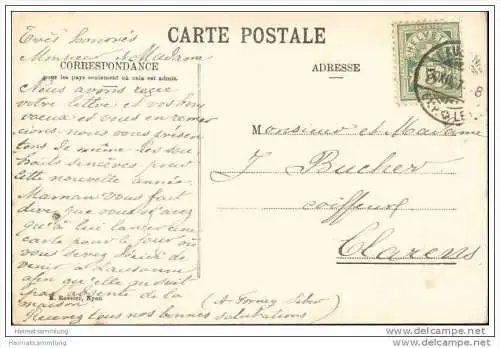 CARTE POSTALE
Très honorés
Monsieur & Madame
CORRESPONDANCE
pour les pays seulement où cela est admis.
ADRESSE
HELVETIA
Nous avons reçu
votre lettre et vos bons
voeux et vous en remer
cions. nous vous présen
tons de même les sou
haits sincères pour
cette nouvelle année.
Maman vous fait
dire que vous n'avez
qu'à lui lancer une
carte pour le jour où
vous serez décidé de
venir à Lausanne
afin qu'elle ne soit
pas absente de la
maison
Recevez tous nos bonnes salutations
(A. Forney
Monsieur et Madame
J. Bucher
coiffeur
Clarens
R. Rossier, Nyon
Heimatsammlung
www.heimatsammlung.de